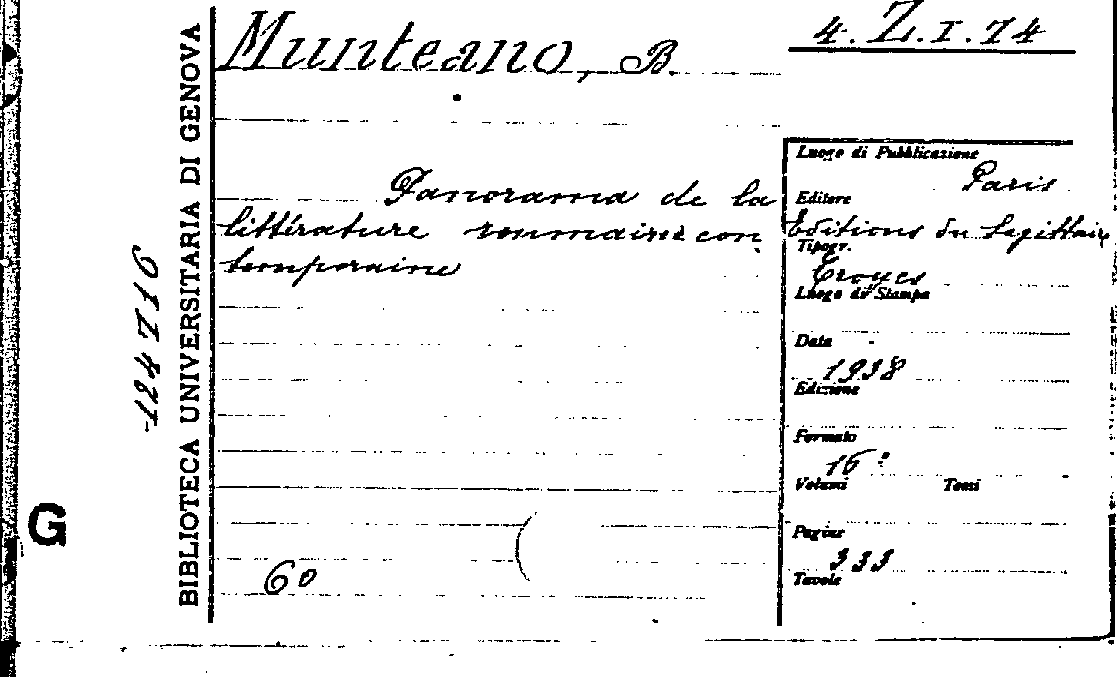 Munteano, B.
4. Z.I.74
BIBLIOTECA UNIVERSITARIA DI GENOVA
Panorama de la
littérature roumaine con
temporaine
Luogo di Pubblicazione
Paris
Editore
Editions du Sagittaire
Tipogr.
Troyes
Luogo di Stampa
Data
1938
Edizione
Formato
16°
Volumi Tomi
Pagine
333
Tavole
G
60